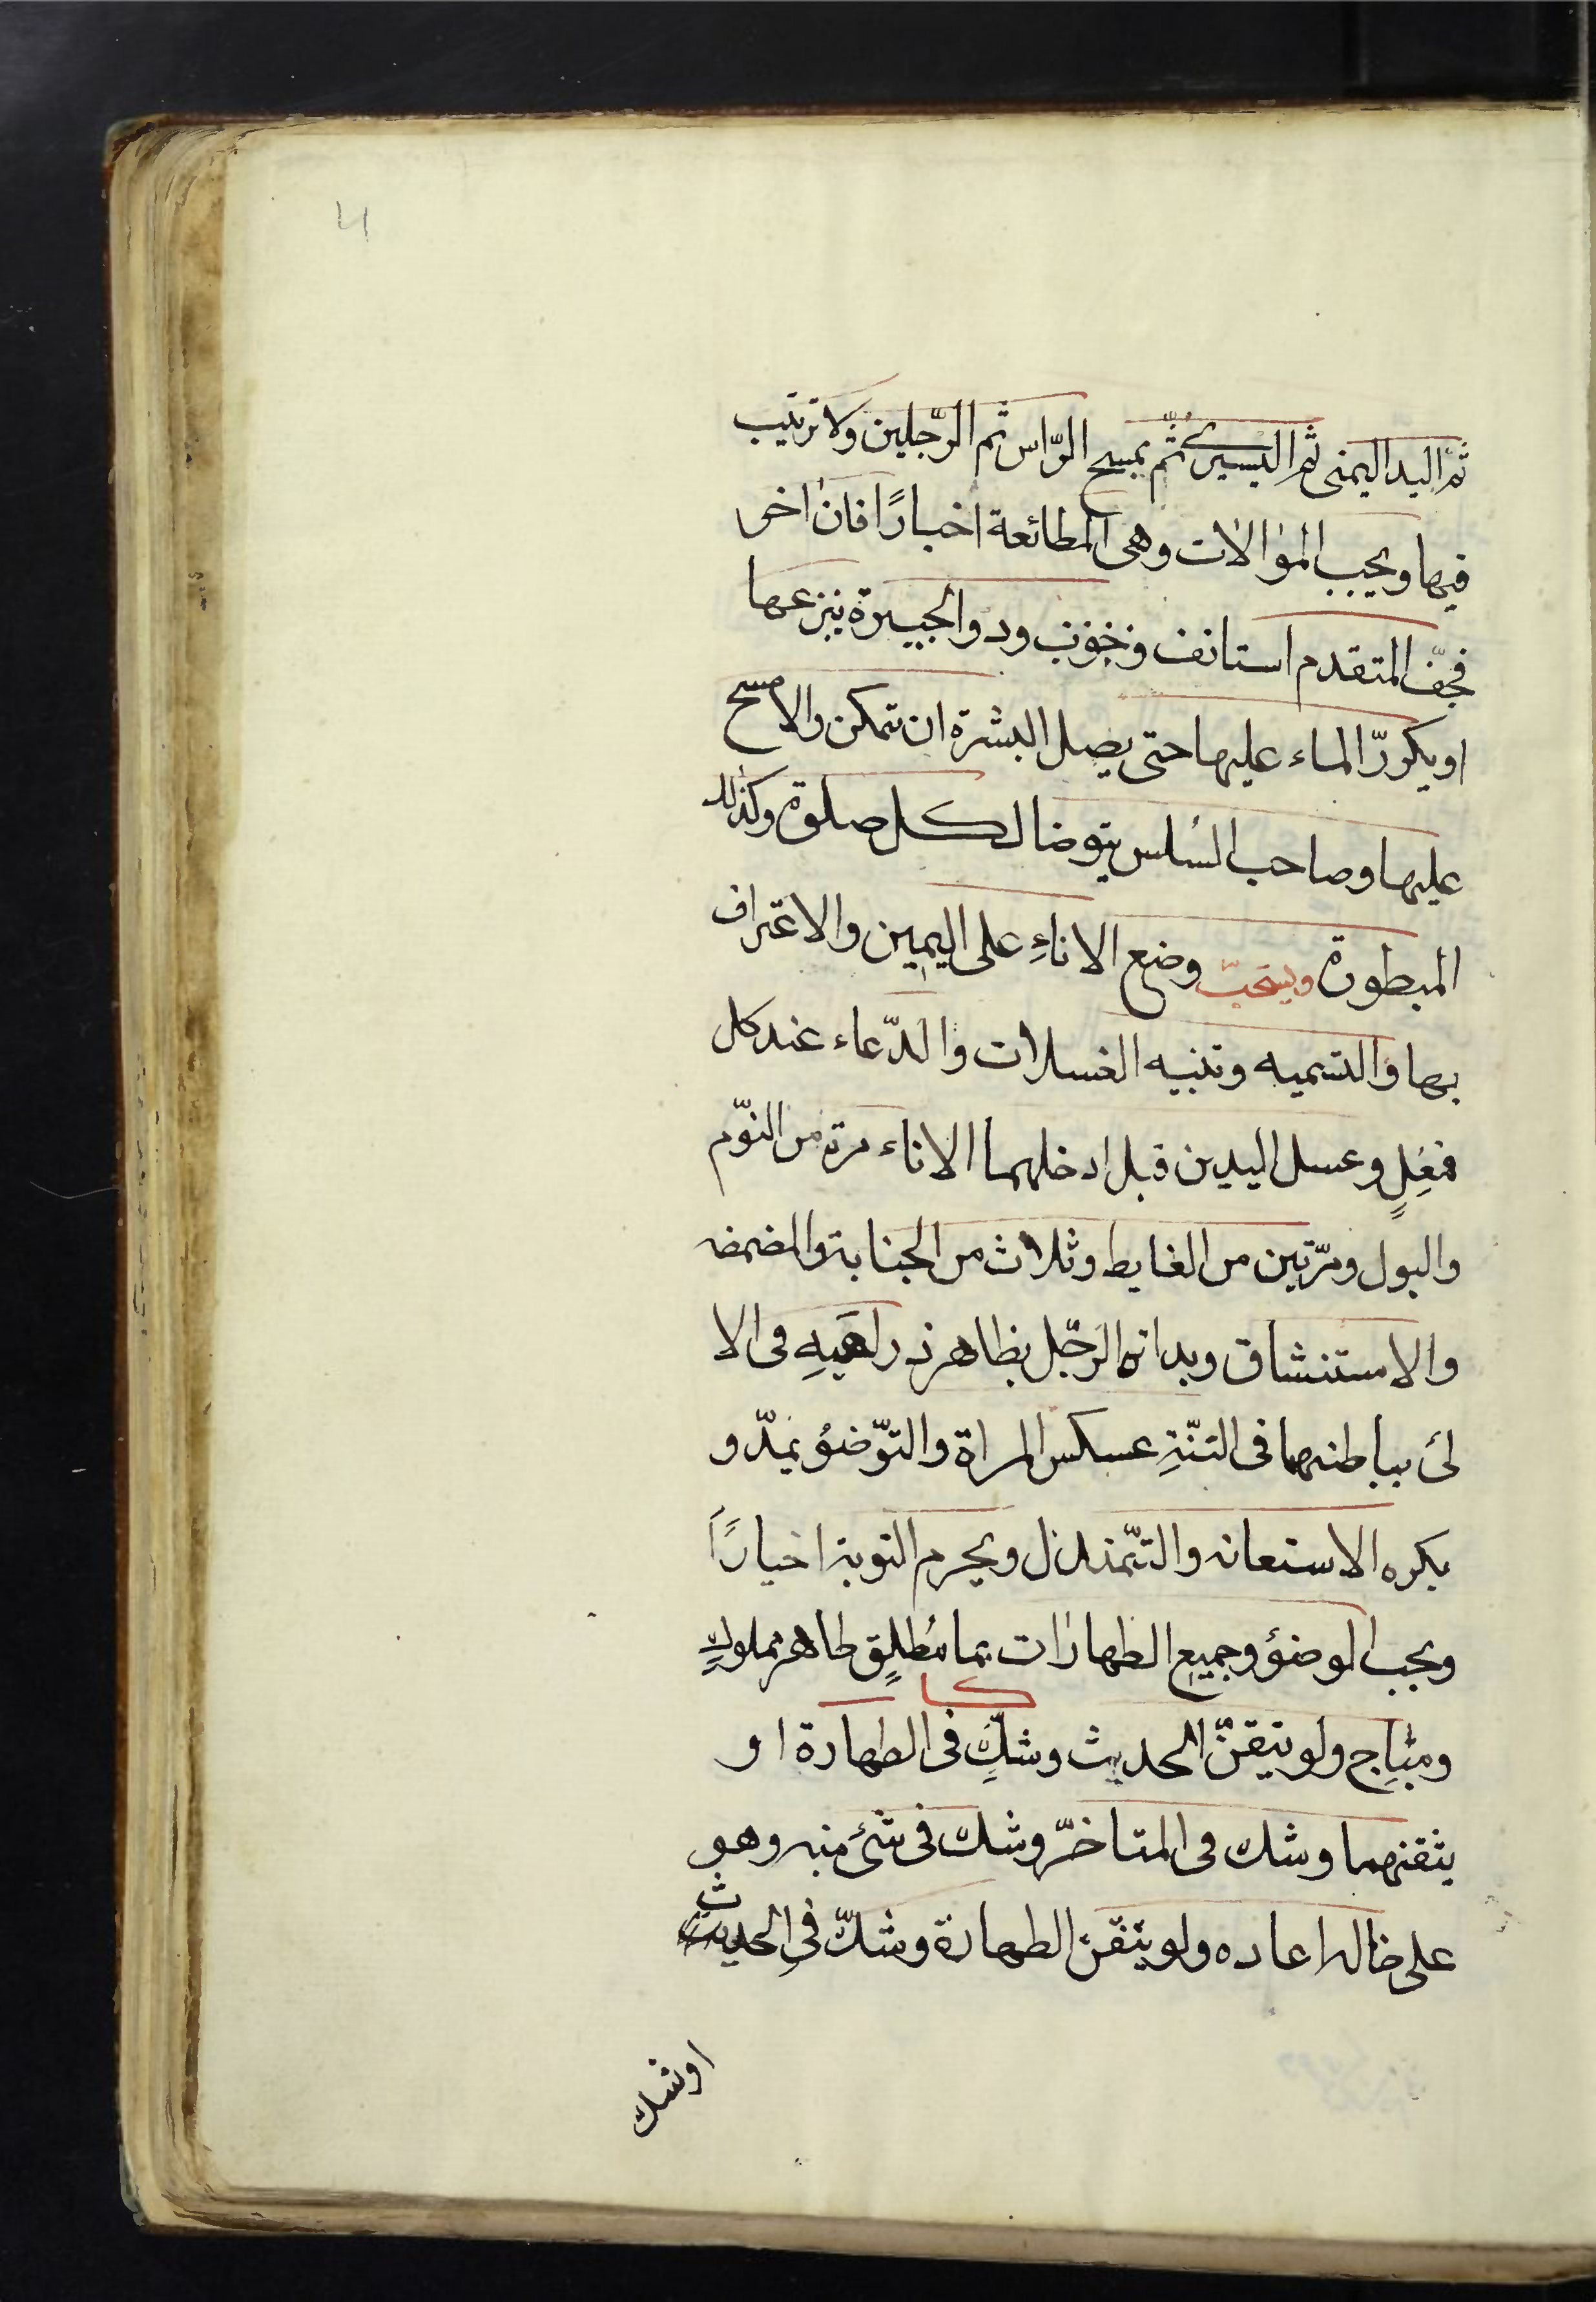 4
ثم اليد اليمنى ثم اليسرى ثمّ يمسح الرّاس ثم الرّجلين ولا ترتيب
فيها ويجب الموالات وهى المطائعة اخبارًا فان اخر
فجفّ المتقدم استانف و ود والجبيرة ينزعها
او يكررّ الماء عليها حتى يصل البشرة ان تمكن والا مسح
عليها وصاحب السلس يتوضا لكل صلوة وكذلك
المبطون ويستحبّ وضع الاناءِ على اليمين والاغتراف
بها والتسميه وتنيه الغسلات والدّعاء عند كل
فعِلٍ وعسل اليدين قبل ادخلهما الاناء مرة من النوّم
والبول ومرّتين من الغايط وثلاث من الجنابة والمضمضه
والاستنشاق وبداته الرّجل بظاهر ذراعيهِ فى الا
لئ بباطنهما فى التنّيةِ عسكس المراة والتوّضؤ بمدّ و
يكره الاستعانه والتمّندل ويحرم التوية اخيارًا
ويجب الوضؤ وجميع الطهارات بما مُطلِقٍ طاهر مملوكٍ
ومباحِ ولو تيقنّ الحديث وشكٍ فى الطهارة او
يثقنهما وشك فى المتاخرّ وشك فى شئ منه وهو
على حاله اعاده ولو يتقن الطهارة وشكّ فى الحديث
اوشك